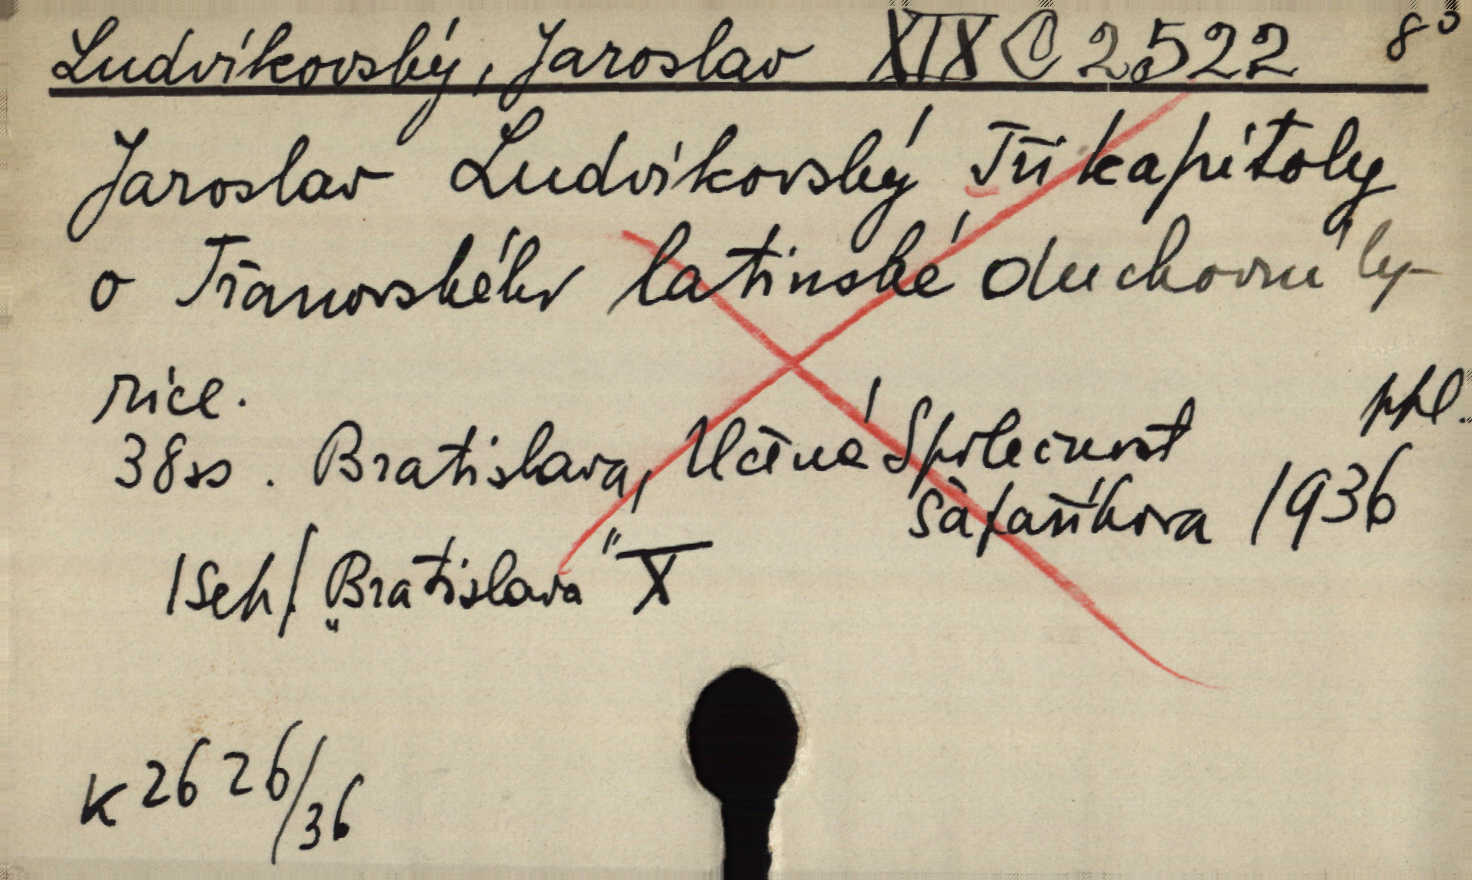 Ludvíkovský, Jaroslav XIX C 2522 8°
Jaroslav Ludvíkovský Tři kapitoly
o Třanovského latinské duchovní ly-
rice.
ppl.
38 ss. Bratislava, Učená Společnost
Šafaříkova 1936
/Seh/ „Bratislava" X
K 2626/36